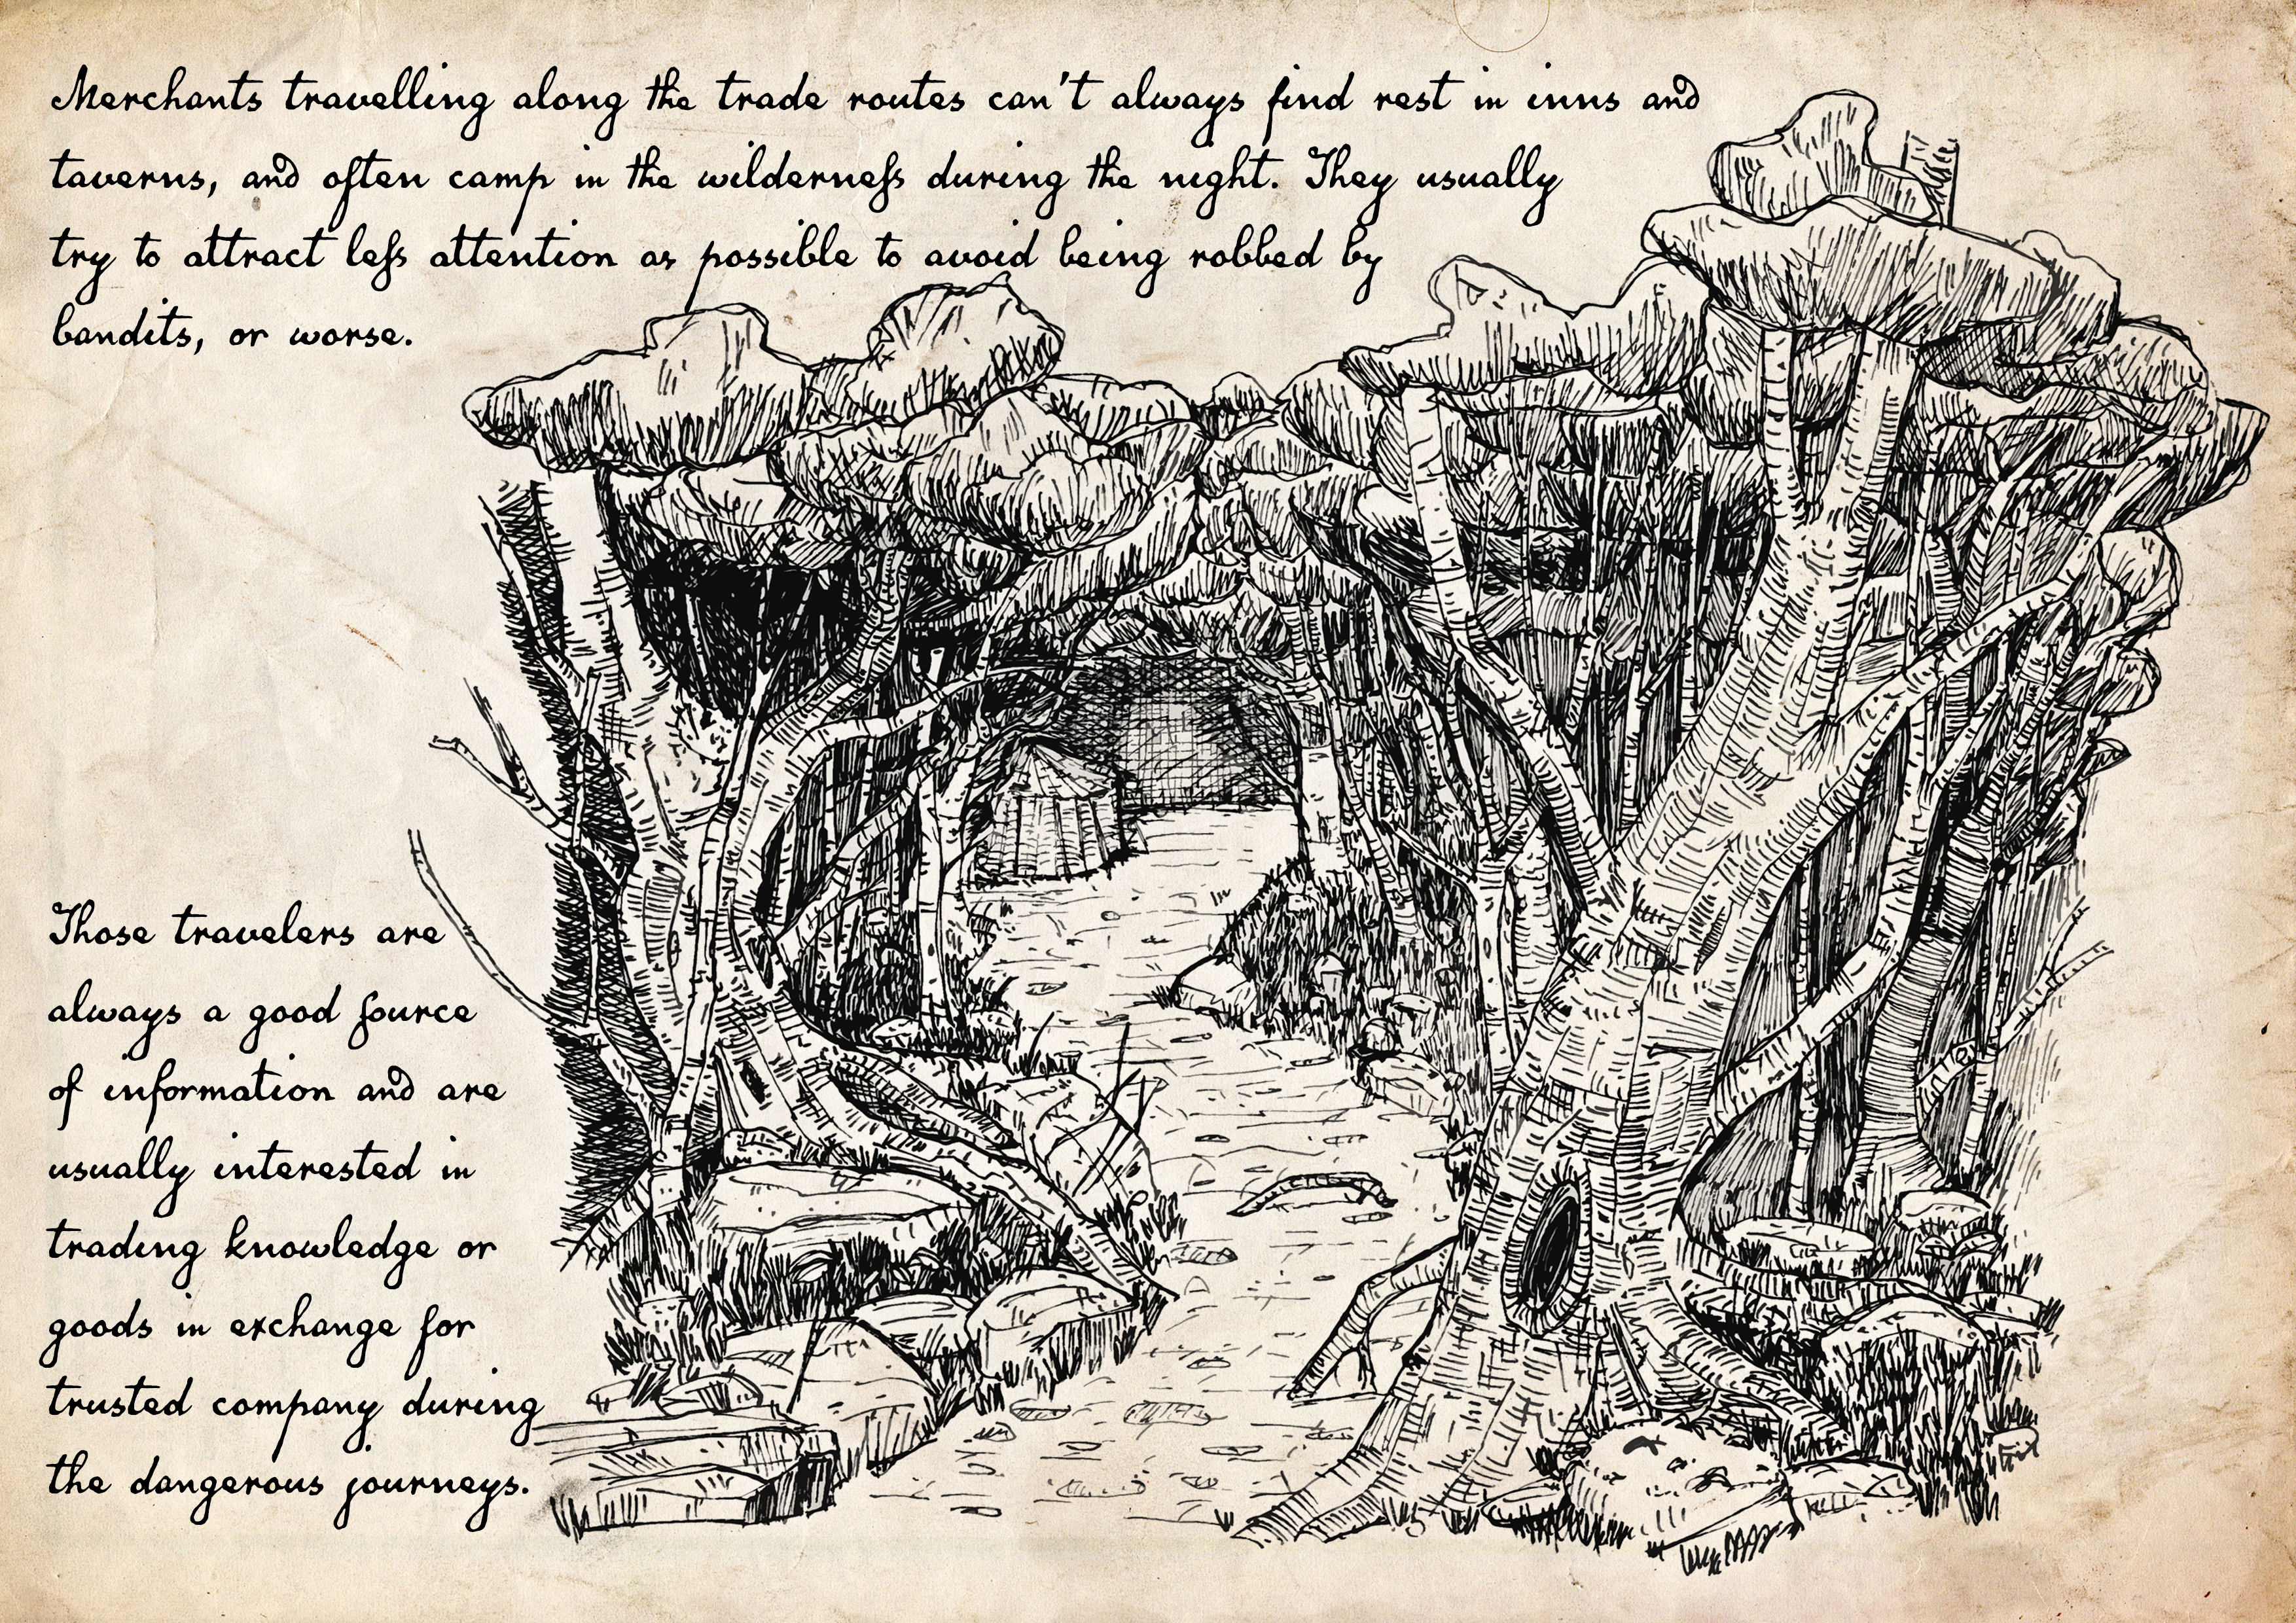 Merchants travelling along the trade routes can't always find rest in inns and
taverns, and often camp in the wilderneſs during the night. They usually
try to attract leſs attention as possible to avoid being robbed by
bandits, or worse.
Those travelers are
always a good ſource
of information and are
usually interested in
trading knowledge or
goods in exchange for
trusted company during
the dangerous journeys.